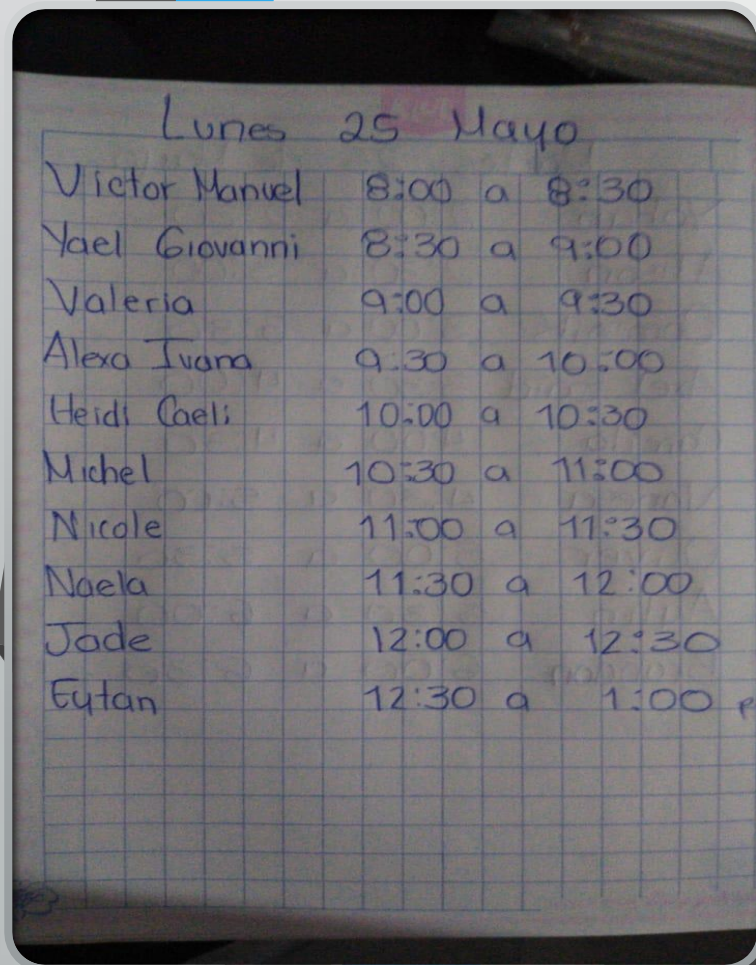 Lunes 25 Mayo
Victor Manuel 8:00 a 8:30
Yael Giovanni 8:30 a 9:00
Valeria 9:00 a 9:30
Alexa Ivana 9:30 a 10:00
Heidi Caeli 10:00 a 10:30
Michel 10:30 a 11:00
Nicole 11:00 a 11:30
Naela 11:30 a 12:00
Jade 12:00 a 12:30
Eytan 12:30 a 1:00 p